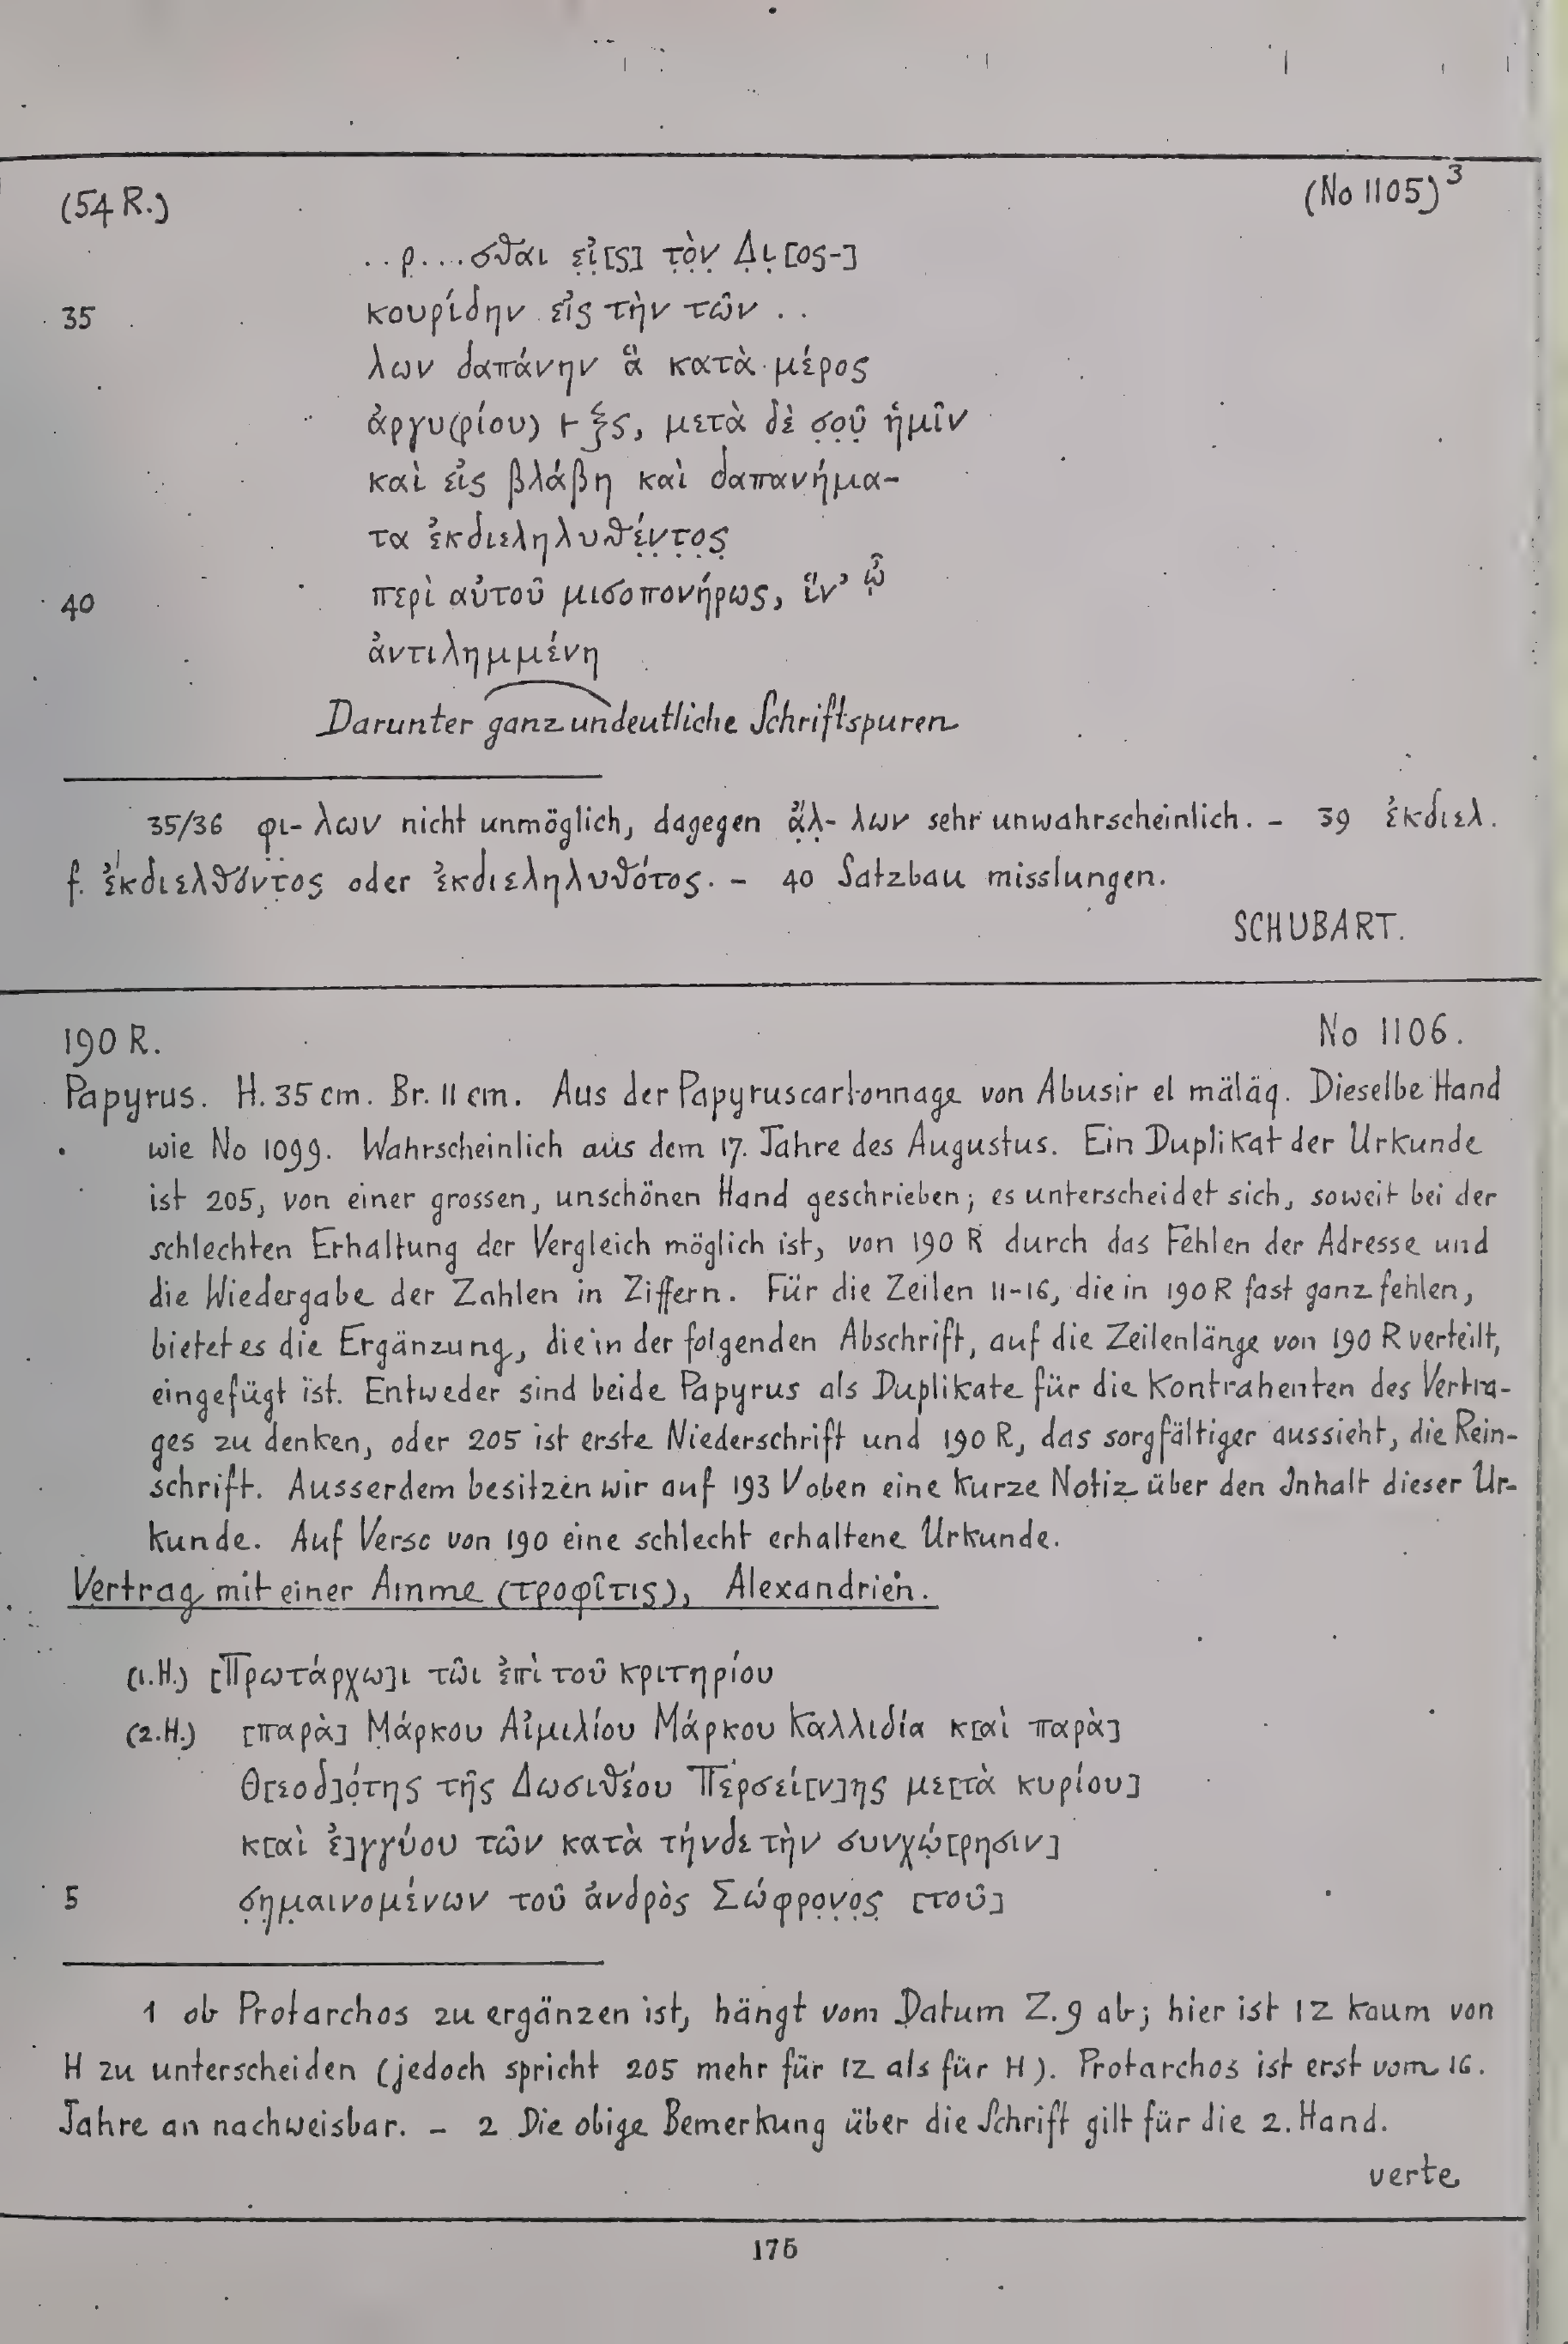 (54 R.) (No 1105)³
..ρ̣....σθαι ε̣ἰ̣[ς] τ̣ὸ̣ν̣ Δ̣ι̣[οσ-]
35 κουρίδην εἰς τὴν τῶν ..
λων δαπάνην ἃ κατὰ μέρος
ἀργυ(ρίου) ⊦ ξϛ, μετὰ δὲ σ̣ο̣ῦ̣ ἡμῖν
καὶ εἰς βλάβη καὶ δαπανήμα-
τα ἐκδιεληλυθέ̣ν̣τ̣ο̣ς̣
40 περὶ αὐτοῦ μισοπονήρως, ἵν' ὦ̣
ἀντιλημμένη
Darunter ganz undeutliche Schriftspuren
35/36 φ̣ι̣- λων nicht unmöglich, dagegen ἄ̣λ̣- λων sehr unwahrscheinlich. – 39 ἐκδιελ.
f. ἐκδιελθό̣ν̣τος oder ἐκδιεληλυθότος. – 40 Satzbau misslungen.
SCHUBART.
190 R. No 1106.
Papyrus. H. 35 cm. Br. 11 cm. Aus der Papyruscartonnage von Abusir el mäläq. Dieselbe Hand
wie No 1099. Wahrscheinlich aus dem 17. Jahre des Augustus. Ein Duplikat der Urkunde
ist 205, von einer grossen, unschönen Hand geschrieben; es unterscheidet sich, soweit bei der
schlechten Erhaltung der Vergleich möglich ist, von 190 R durch das Fehlen der Adresse und
die Wiedergabe der Zahlen in Ziffern. Für die Zeilen 11-16, die in 190 R fast ganz fehlen,
bietet es die Ergänzung, die in der folgenden Abschrift, auf die Zeilenlänge von 190 R verteilt,
eingefügt ist. Entweder sind beide Papyrus als Duplikate für die Kontrahenten des Vertra-
ges zu denken, oder 205 ist erste Niederschrift und 190 R, das sorgfältiger aussieht, die Rein-
schrift. Ausserdem besitzen wir auf 193 V oben eine kurze Notiz über den Inhalt dieser Ur-
kunde. Auf Verso von 190 eine schlecht erhaltene Urkunde.
Vertrag mit einer Amme (τροφῖτις), Alexandrien.
(1.H.) [Πρωτάρχω]ι τῶι ἐπὶ τοῦ κριτηρίου
(2.H.) [παρὰ] Μ̣άρκου Αἰμιλίου Μάρκου Καλλιδία κ[αὶ παρὰ]
Θ[εοδ]ό̣της τῆς Δωσιθέου Περσεί[ν]ης με[τὰ κυρίου]
κ[αὶ ἐ]γγύου τῶν κατὰ τήνδε τὴν συνχώ̣[ρησιν]
5 σ̣η̣μ̣αινομένων τοῦ ἀνδρὸς Σώφρο̣ν̣ο̣ς̣ [τοῦ]
1 ob Protarchos zu ergänzen ist, hängt vom Datum Z. 9 ab; hier ist IZ kaum von
H zu unterscheiden (jedoch spricht 205 mehr für IZ als für H). Protarchos ist erst vom 16.
Jahre an nachweisbar. – 2 Die obige Bemerkung über die Schrift gilt für die 2. Hand.
verte
175